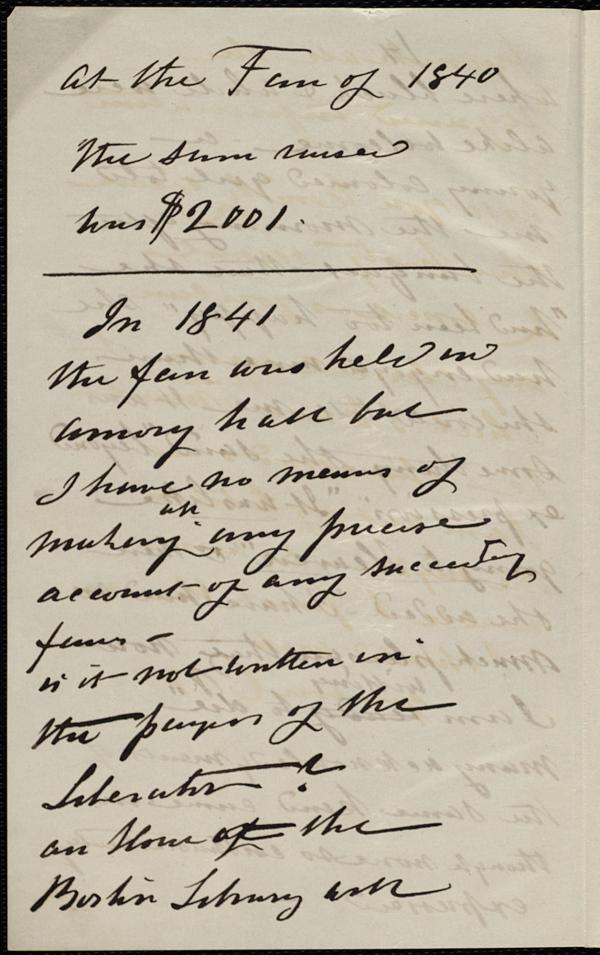 at the Fair of 1840
the sum raised
was $2001.
In 1841
the fair was held in
amory hall but
I have no means of
making an any precise
account of any succeeding
fairs –
is it not written in
the pages of the
Liberator?
an hour of the
Boston Library will